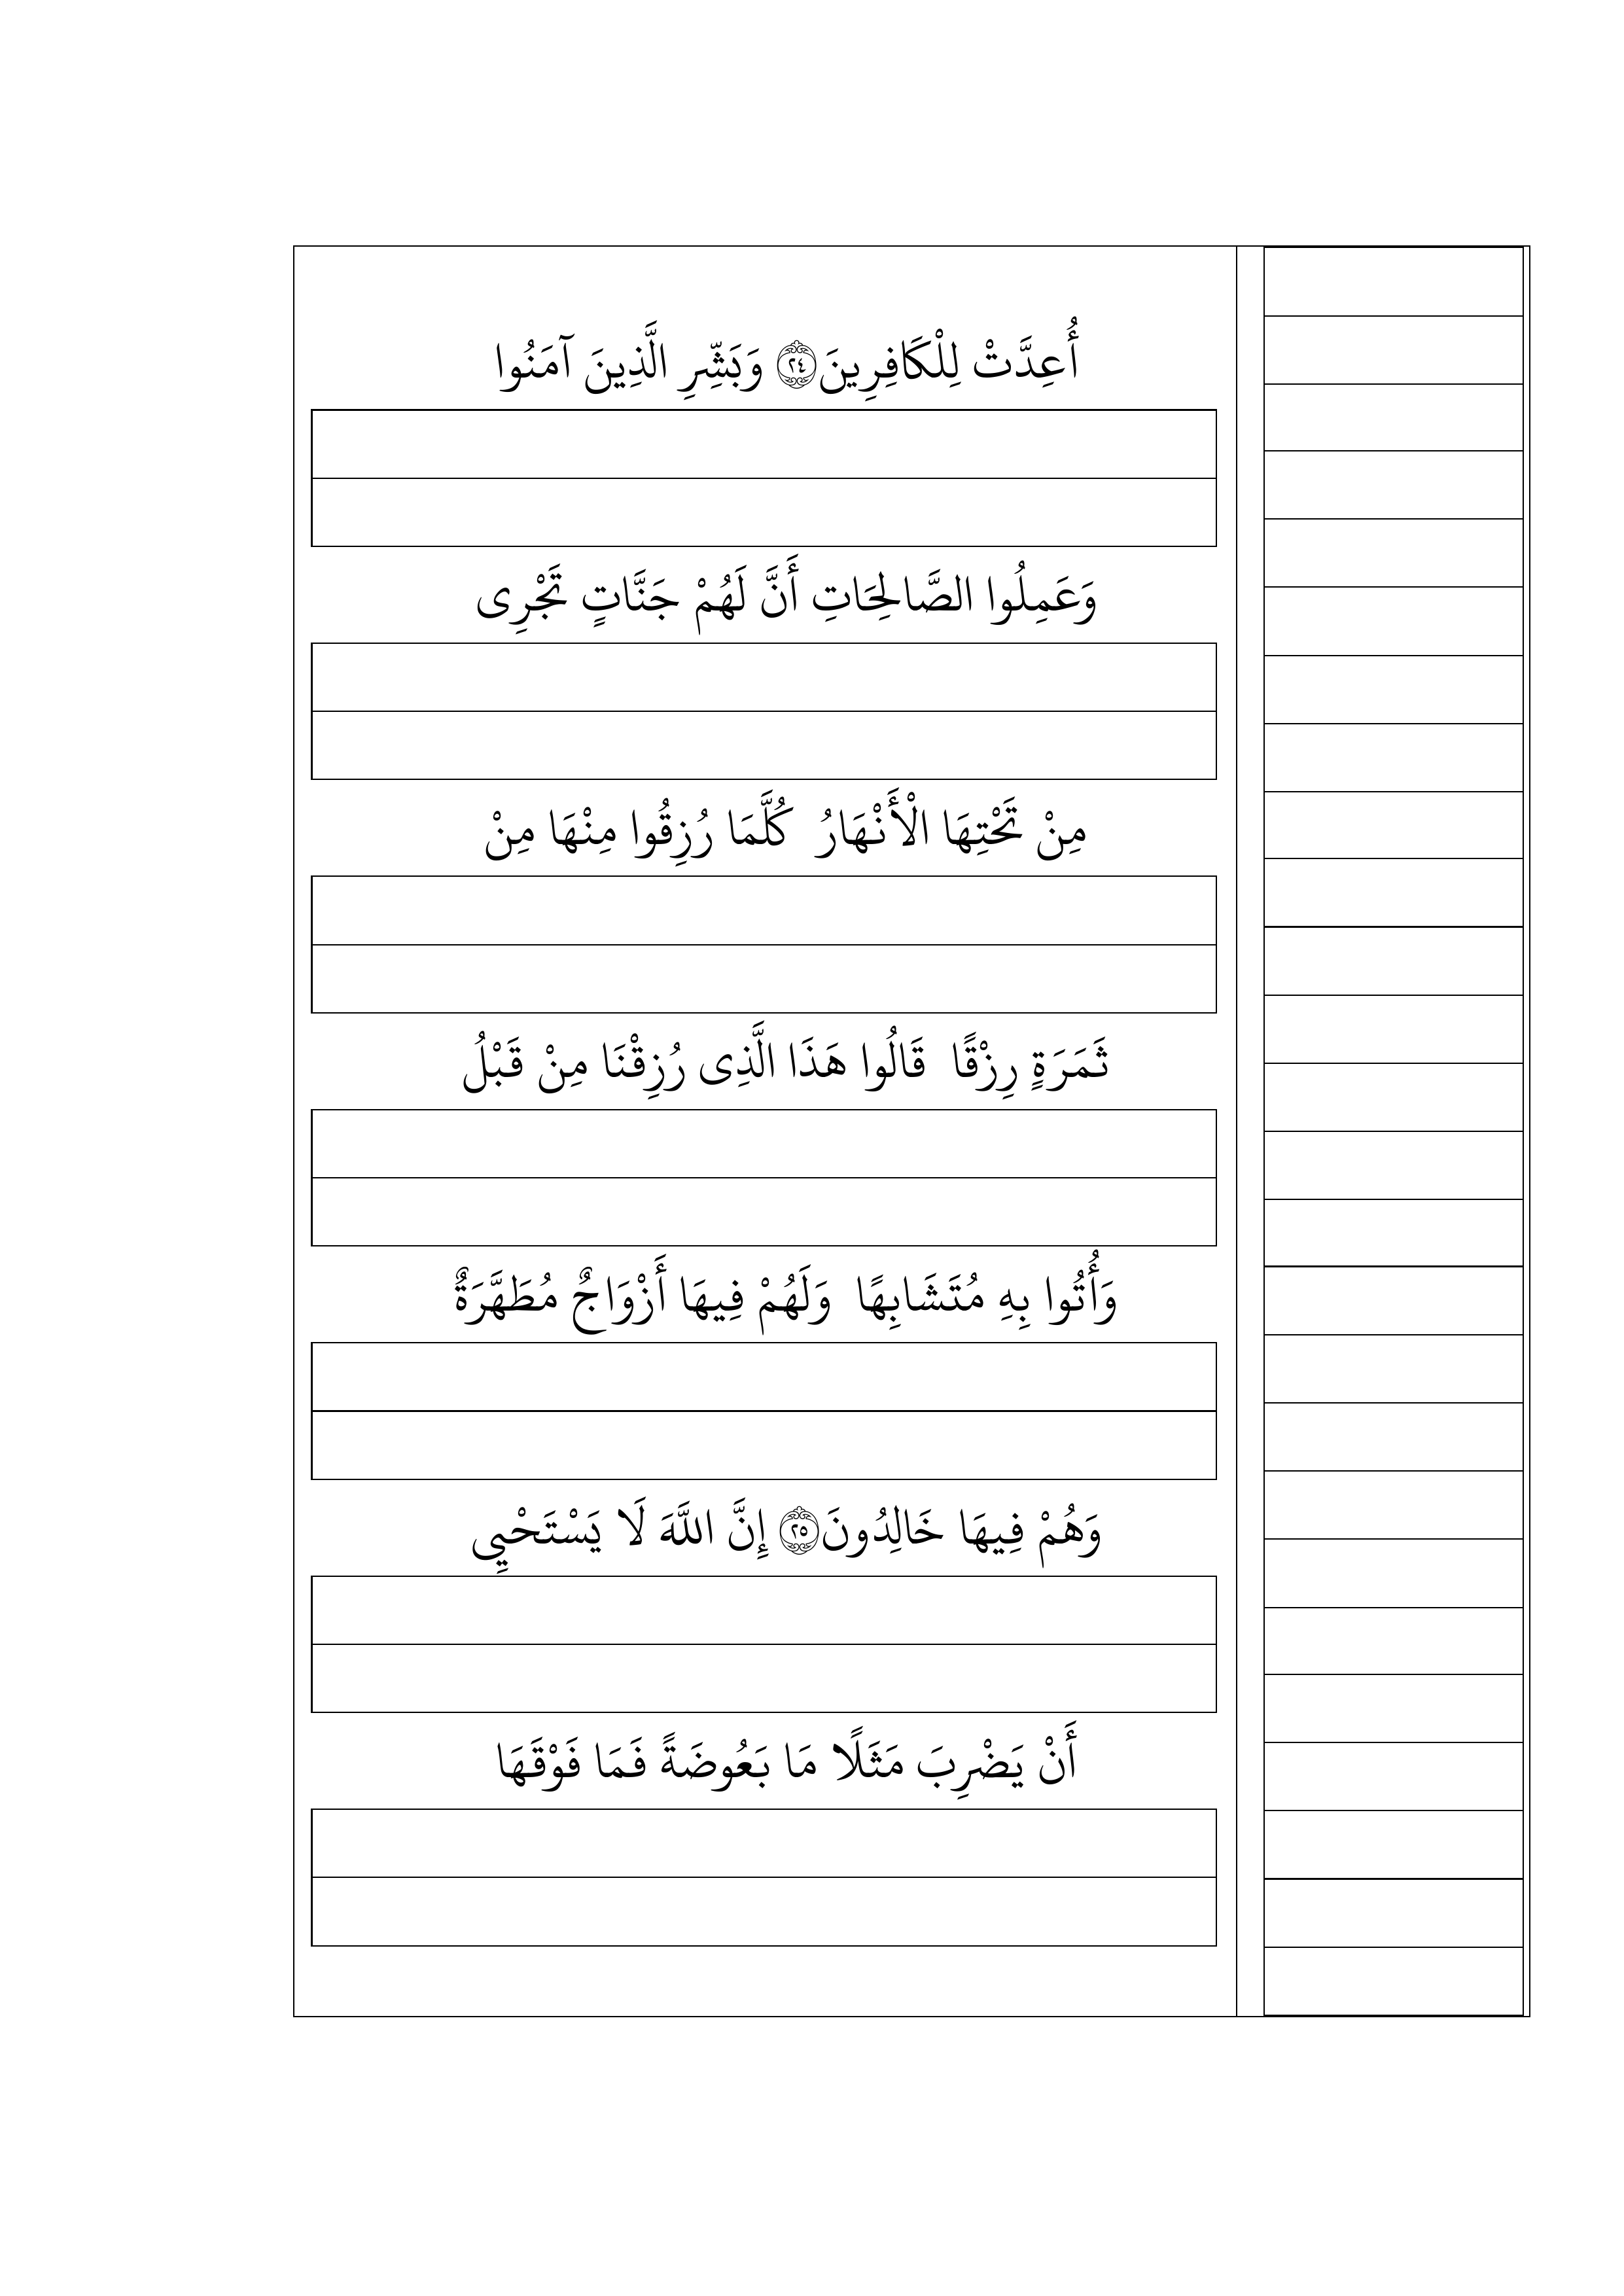 أُعِدَّتْ لِلْكَافِرِينَ ﴿٢٤﴾ وَبَشِّرِ الَّذِينَ آمَنُوا
وَعَمِلُوا الصَّالِحَاتِ أَنَّ لَهُمْ جَنَّاتٍ تَجْرِى
مِنْ تَحْتِهَا الْأَنْهَارُ كُلَّمَا رُزِقُوا مِنْهَا مِنْ
ثَمَرَةٍ رِزْقًا قَالُوا هَذَا الَّذِى رُزِقْنَا مِنْ قَبْلُ
وَأُتُوا بِهِ مُتَشَابِهًا وَلَهُمْ فِيهَا أَزْوَاجٌ مُطَهَّرَةٌ
وَهُمْ فِيهَا خَالِدُونَ ﴿٢٥﴾ إِنَّ اللَّهَ لَا يَسْتَحْيِى
أَنْ يَضْرِبَ مَثَلًا مَا بَعُوضَةً فَمَا فَوْقَهَا